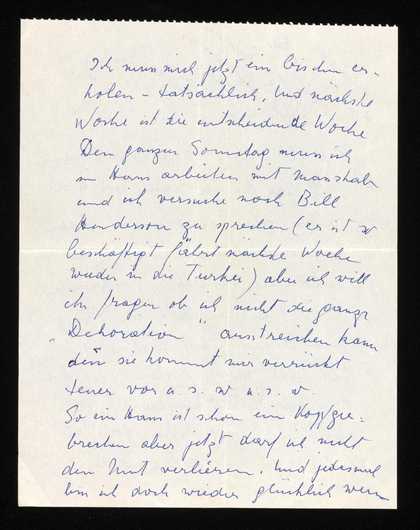 Ich muss mich jetzt ein bischen er-
holen - tatsächlich, Und nächste
Woche ist die entscheidende Woche
Den ganzen Sonntag muss ich
im Haus arbeiten mit
und ich versuche noch Bill
Henderson zu sprechen (er ist so
beschäftigt fährt nächste Woche
wieder in die Turkei) aber ich will
ihn fragen ob ich nicht die ganze
"Dekoration" ausstreichen kann
denn sie kommt mir verrückt
teuer vor u. s. w u. s. w.
So ein Haus ist schon ein Kopfze-
brechen aber jetzt darf ich nicht
den Mut verlieren. Und jedesmal
bin ich doch wieder glücklich wenn